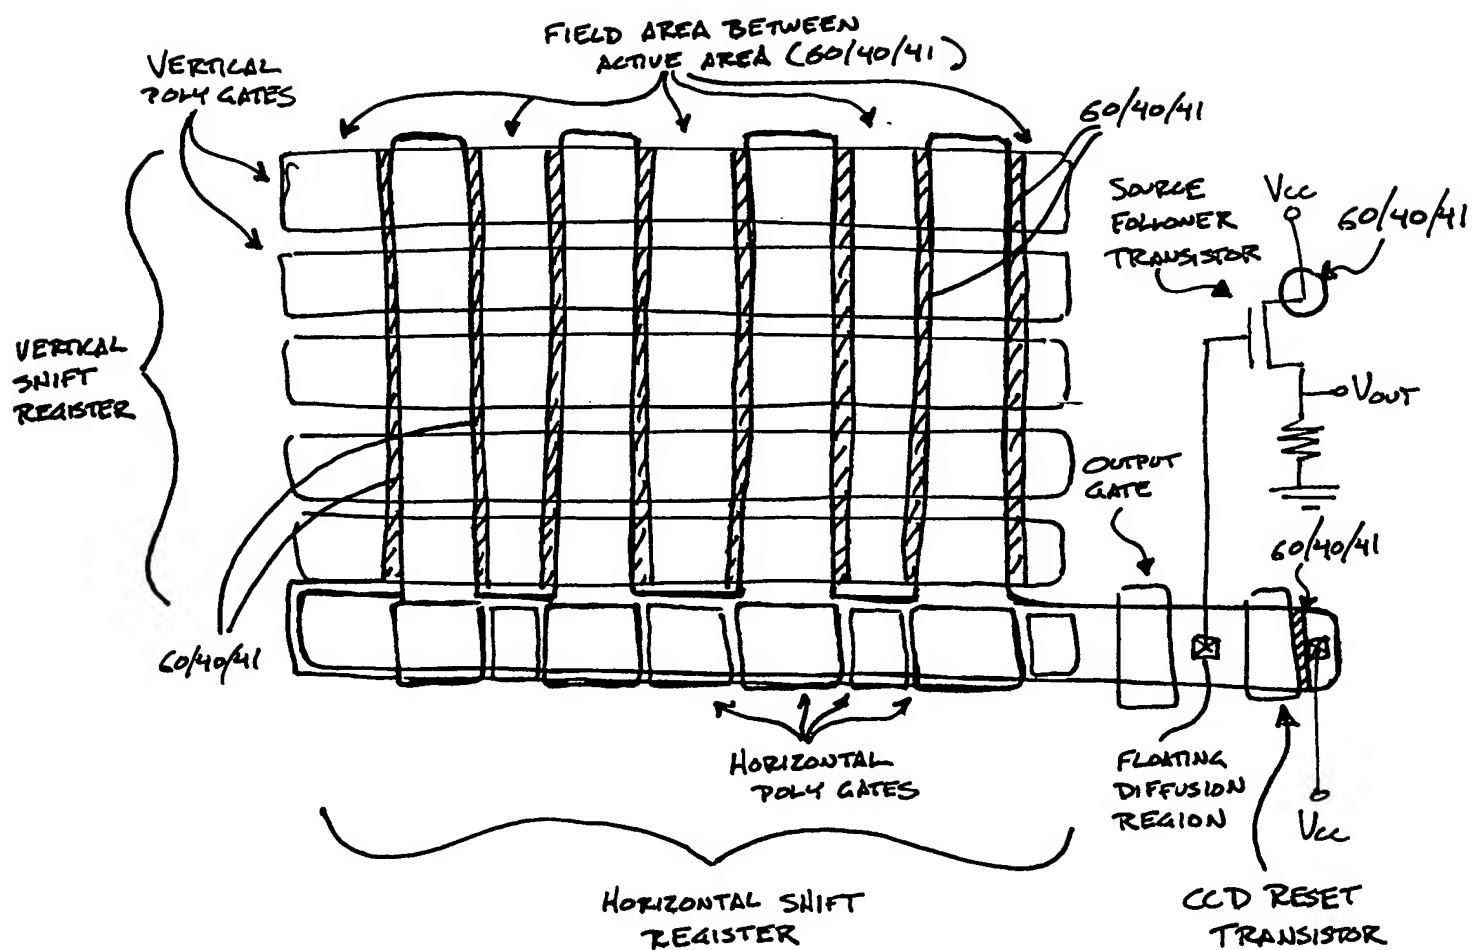 FIELD AREA BETWEEN
ACTIVE AREA (60/40/41)
VERTICAL
POLY GATES
60/40/41
SOURCE
FOLLOWER
TRANSISTOR
VCC
60/40/41
VERTICAL
SHIFT
REGISTER
VOUT
OUTPUT
GATE
60/40/41
60/40/41
HORIZONTAL
POLY GATES
FLOATING
DIFFUSION
REGION
VCC
HORIZONTAL SHIFT
REGISTER
CCD RESET
TRANSISTOR